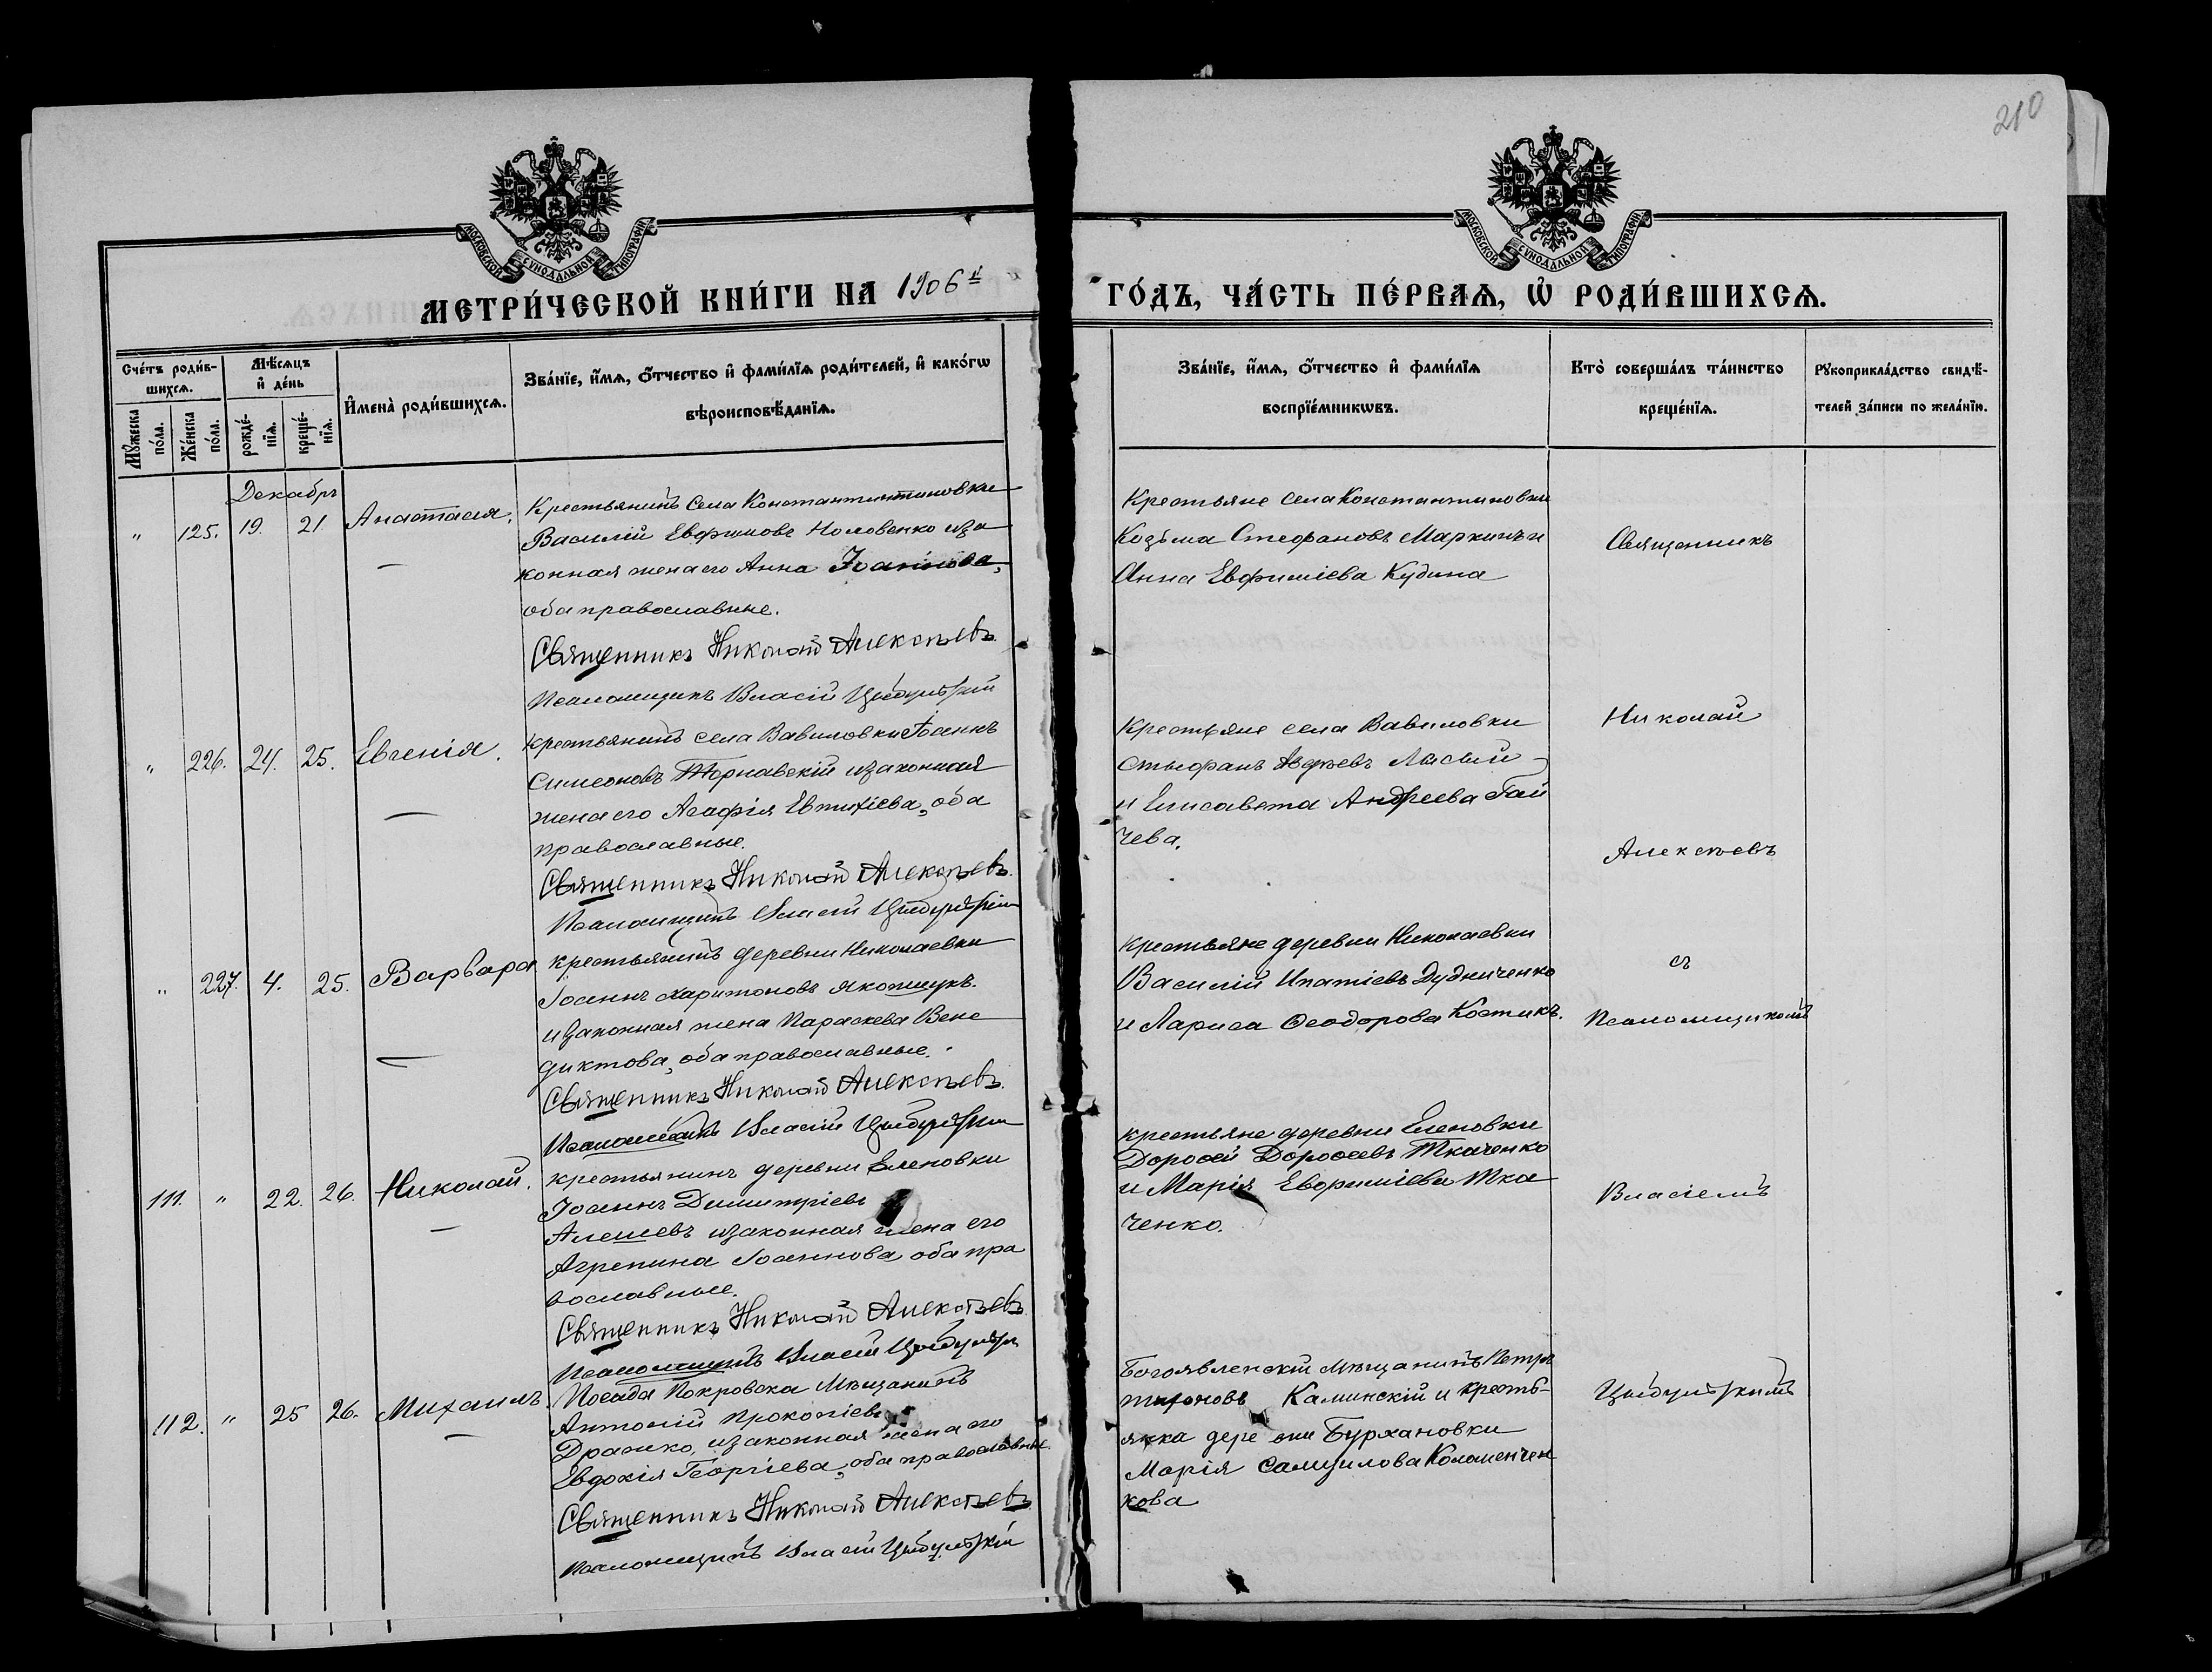 210
МОСКОВСКОЙ СѴНОДАЛЬНОЙ ТИПОГРАФІИ
МОСКОВСКОЙ СѴНОДАЛЬНОЙ ТИПОГРАФІИ
МЕТРИ́ЧЕСКОЙ КНИ́ГИ НА 1906й ГО́ДЪ, ЧА́СТЬ ПЕ́РВАѦ, Ѡ҆ РОДИ́ВШИХСѦ.
Сче́тъ роди́в-
шихсѧ.
Мѣ́сѧцъ
и҆ де́нь
Мꙋ́жеска по́ла.
Же́нска по́ла.
рожде́-нїѧ.
креще́-нїѧ.
И҆мена̀ роди́вшихсѧ.
Зва́нїе, и҆́мѧ, ѻ҆́тчество и҆ фами́лїѧ роди́телей, и҆ како́гѡ
вѣроисповѣ́данїѧ.
Зва́нїе, и҆́мѧ, ѻ҆́тчество и҆ фами́лїѧ
воспрїе́мникѡвъ.
Кто̀ соверша́лъ та́инство
креще́нїѧ.
Рꙋкоприкла́дство свидѣ́-
телей за́писи по жела́нїю.
Декабрь
" 125. 19. 21. Анастасія.
Крестьянинъ села Константинтиновки
Василій Евфимовъ Головенко иза
конная жена его Анна Іоаннова,
оба православные.
Священникъ Николай Алексѣевъ
Псаломщикъ Власій
Крестьяне села Константиновки
Козьма Стефановъ Маркинъ и
Анна Евфиміева Кудина
Священникъ
" 226. 24. 25. Евгенія.
Крестьянинъ села Вавиловки Іоаннъ
Симеоновъ Тернавскій изаконная
жена его Агафія Евтихіева, оба
православные.
Священникъ Николай Алексѣевъ.
Псаломщикъ Власій
Крестьяне села Вавиловки
Стефанъ
и Елисавета Андреева Гай
чева.
Николай
Алексѣевъ
" 227. 4. 25. Варвара
крестьянинъ деревни Николаевки
Іоаннъ Харитоновъ
изаконная жена Параскева Вене
диктова, оба православные.
Священникъ Николай Алексѣевъ.
Псаломщикъ Власій
крестьяне деревни Николаевки
Василій Ипатіевъ Дудниченко
и Лариса Ѳеодорова Костикъ.
съ
Псаломщикомъ
111. " 22. 26. Николай.
крестьянинъ деревни Еленовки
Іоаннъ Димитріевъ
изаконная жена его
Агрепина Іоаннова оба пра
вославные.
Священникъ Николай Алексѣевъ
Псаломщикъ Власій
крестьяне деревни Еленовки
Дороѳей Дороѳеевъ Ткаченко
и Марія Евфиміева Тка
ченко.
Власіемъ
112. " 25 26. Михаилъ.
Посада Покровска Мѣщанинъ
Антоній Прокопіевъ
изаконная жена его
Евдокія Георгіева, оба православные
Священникъ Николай Алексѣевъ
Псаломщикъ Власій
Богоявленскій Мѣщанинъ Петръ
Тихоновъ Каминскій и кресть-
янка деревни Бурхановки
Марія Самуилова Коломенчен
кова